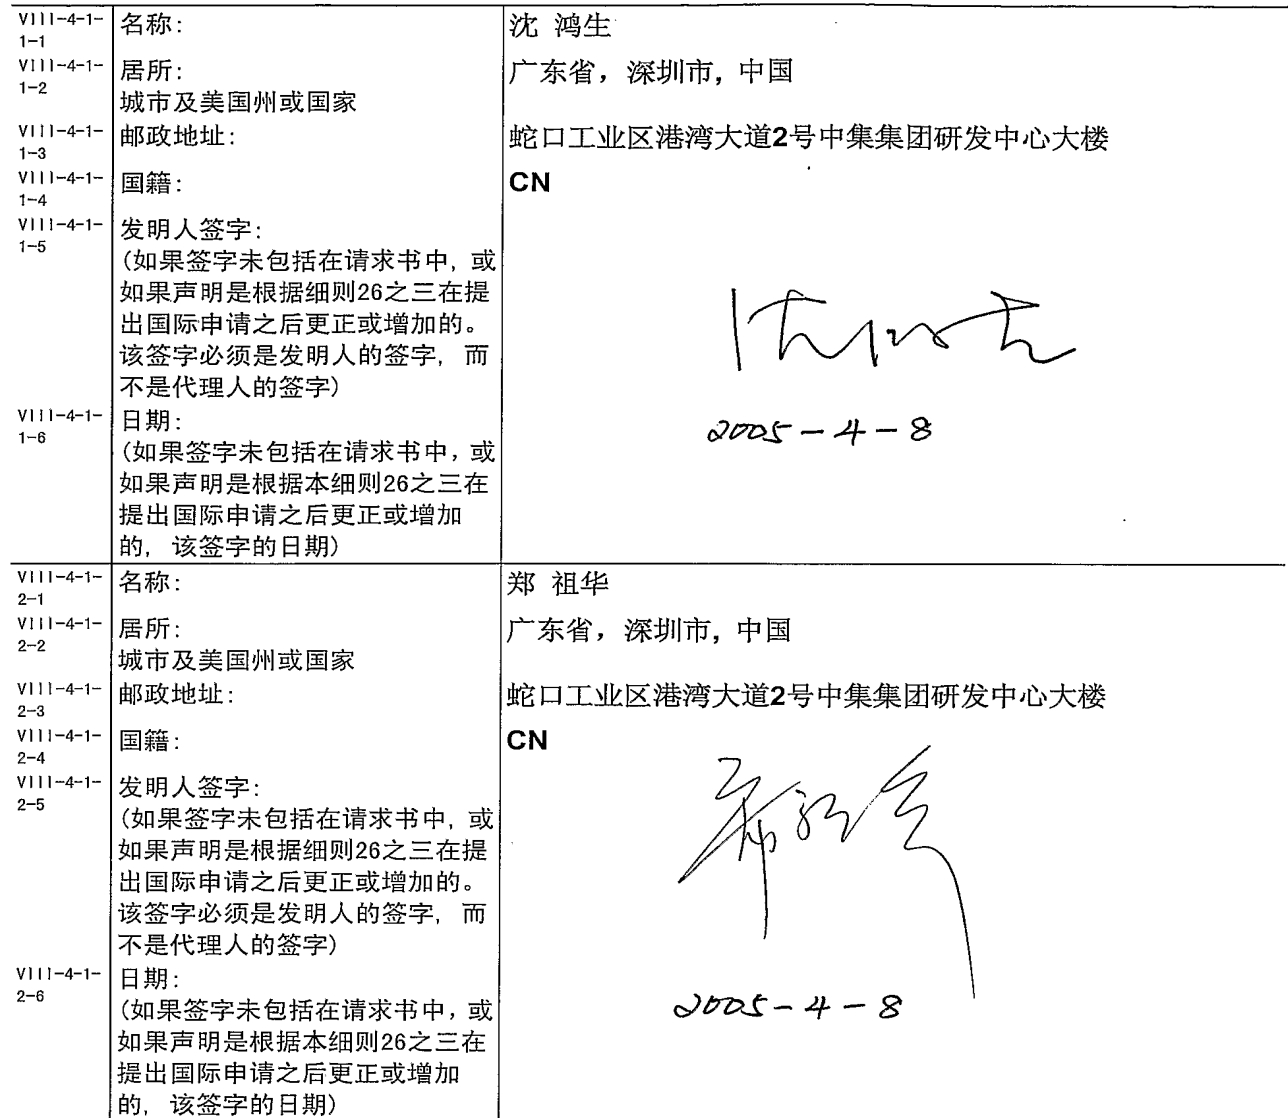 VIII-4-1-1-1 名称: 沈 鸿生
VIII-4-1-1-2 居所: 广东省，深圳市，中国
城市及美国州或国家
VIII-4-1-1-3 邮政地址: 蛇口工业区港湾大道2号中集集团研发中心大楼
VIII-4-1-1-4 国籍: CN
VIII-4-1-1-5 发明人签字:
(如果签字未包括在请求书中，或
如果声明是根据细则26之三在提
出国际申请之后更正或增加的。
该签字必须是发明人的签字，而
不是代理人的签字)
VIII-4-1-1-6 日期: 2005-4-8
(如果签字未包括在请求书中，或
如果声明是根据本细则26之三在
提出国际申请之后更正或增加
的，该签字的日期)
VIII-4-1-2-1 名称: 郑 祖华
VIII-4-1-2-2 居所: 广东省，深圳市，中国
城市及美国州或国家
VIII-4-1-2-3 邮政地址: 蛇口工业区港湾大道2号中集集团研发中心大楼
VIII-4-1-2-4 国籍: CN
VIII-4-1-2-5 发明人签字:
(如果签字未包括在请求书中，或
如果声明是根据细则26之三在提
出国际申请之后更正或增加的。
该签字必须是发明人的签字，而
不是代理人的签字)
VIII-4-1-2-6 日期: 2005-4-8
(如果签字未包括在请求书中，或
如果声明是根据本细则26之三在
提出国际申请之后更正或增加
的，该签字的日期)